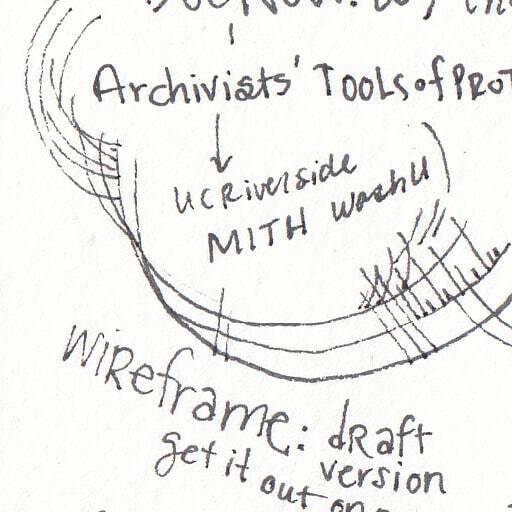 Archivists' Tools of
UCRiverside
MITH WashU)
Wireframe: draft
version
get it out on